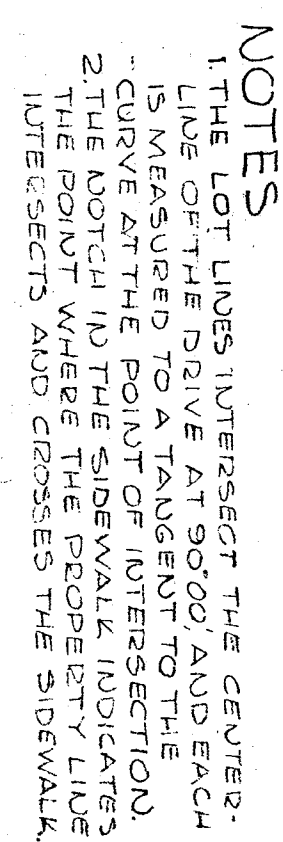 NOTES
1. THE LOT LINES INTERSECT THE CENTER-
LINE OF THE DRIVE AT 90°00', AND EACH
IS MEASURED TO A TANGENT TO THE
CURVE AT THE POINT OF INTERSECTION.
2. THE NOTCH IN THE SIDEWALK INDICATES
THE POINT WHERE THE PROPERTY LINE
INTERSECTS AND CROSSES THE SIDEWALK.